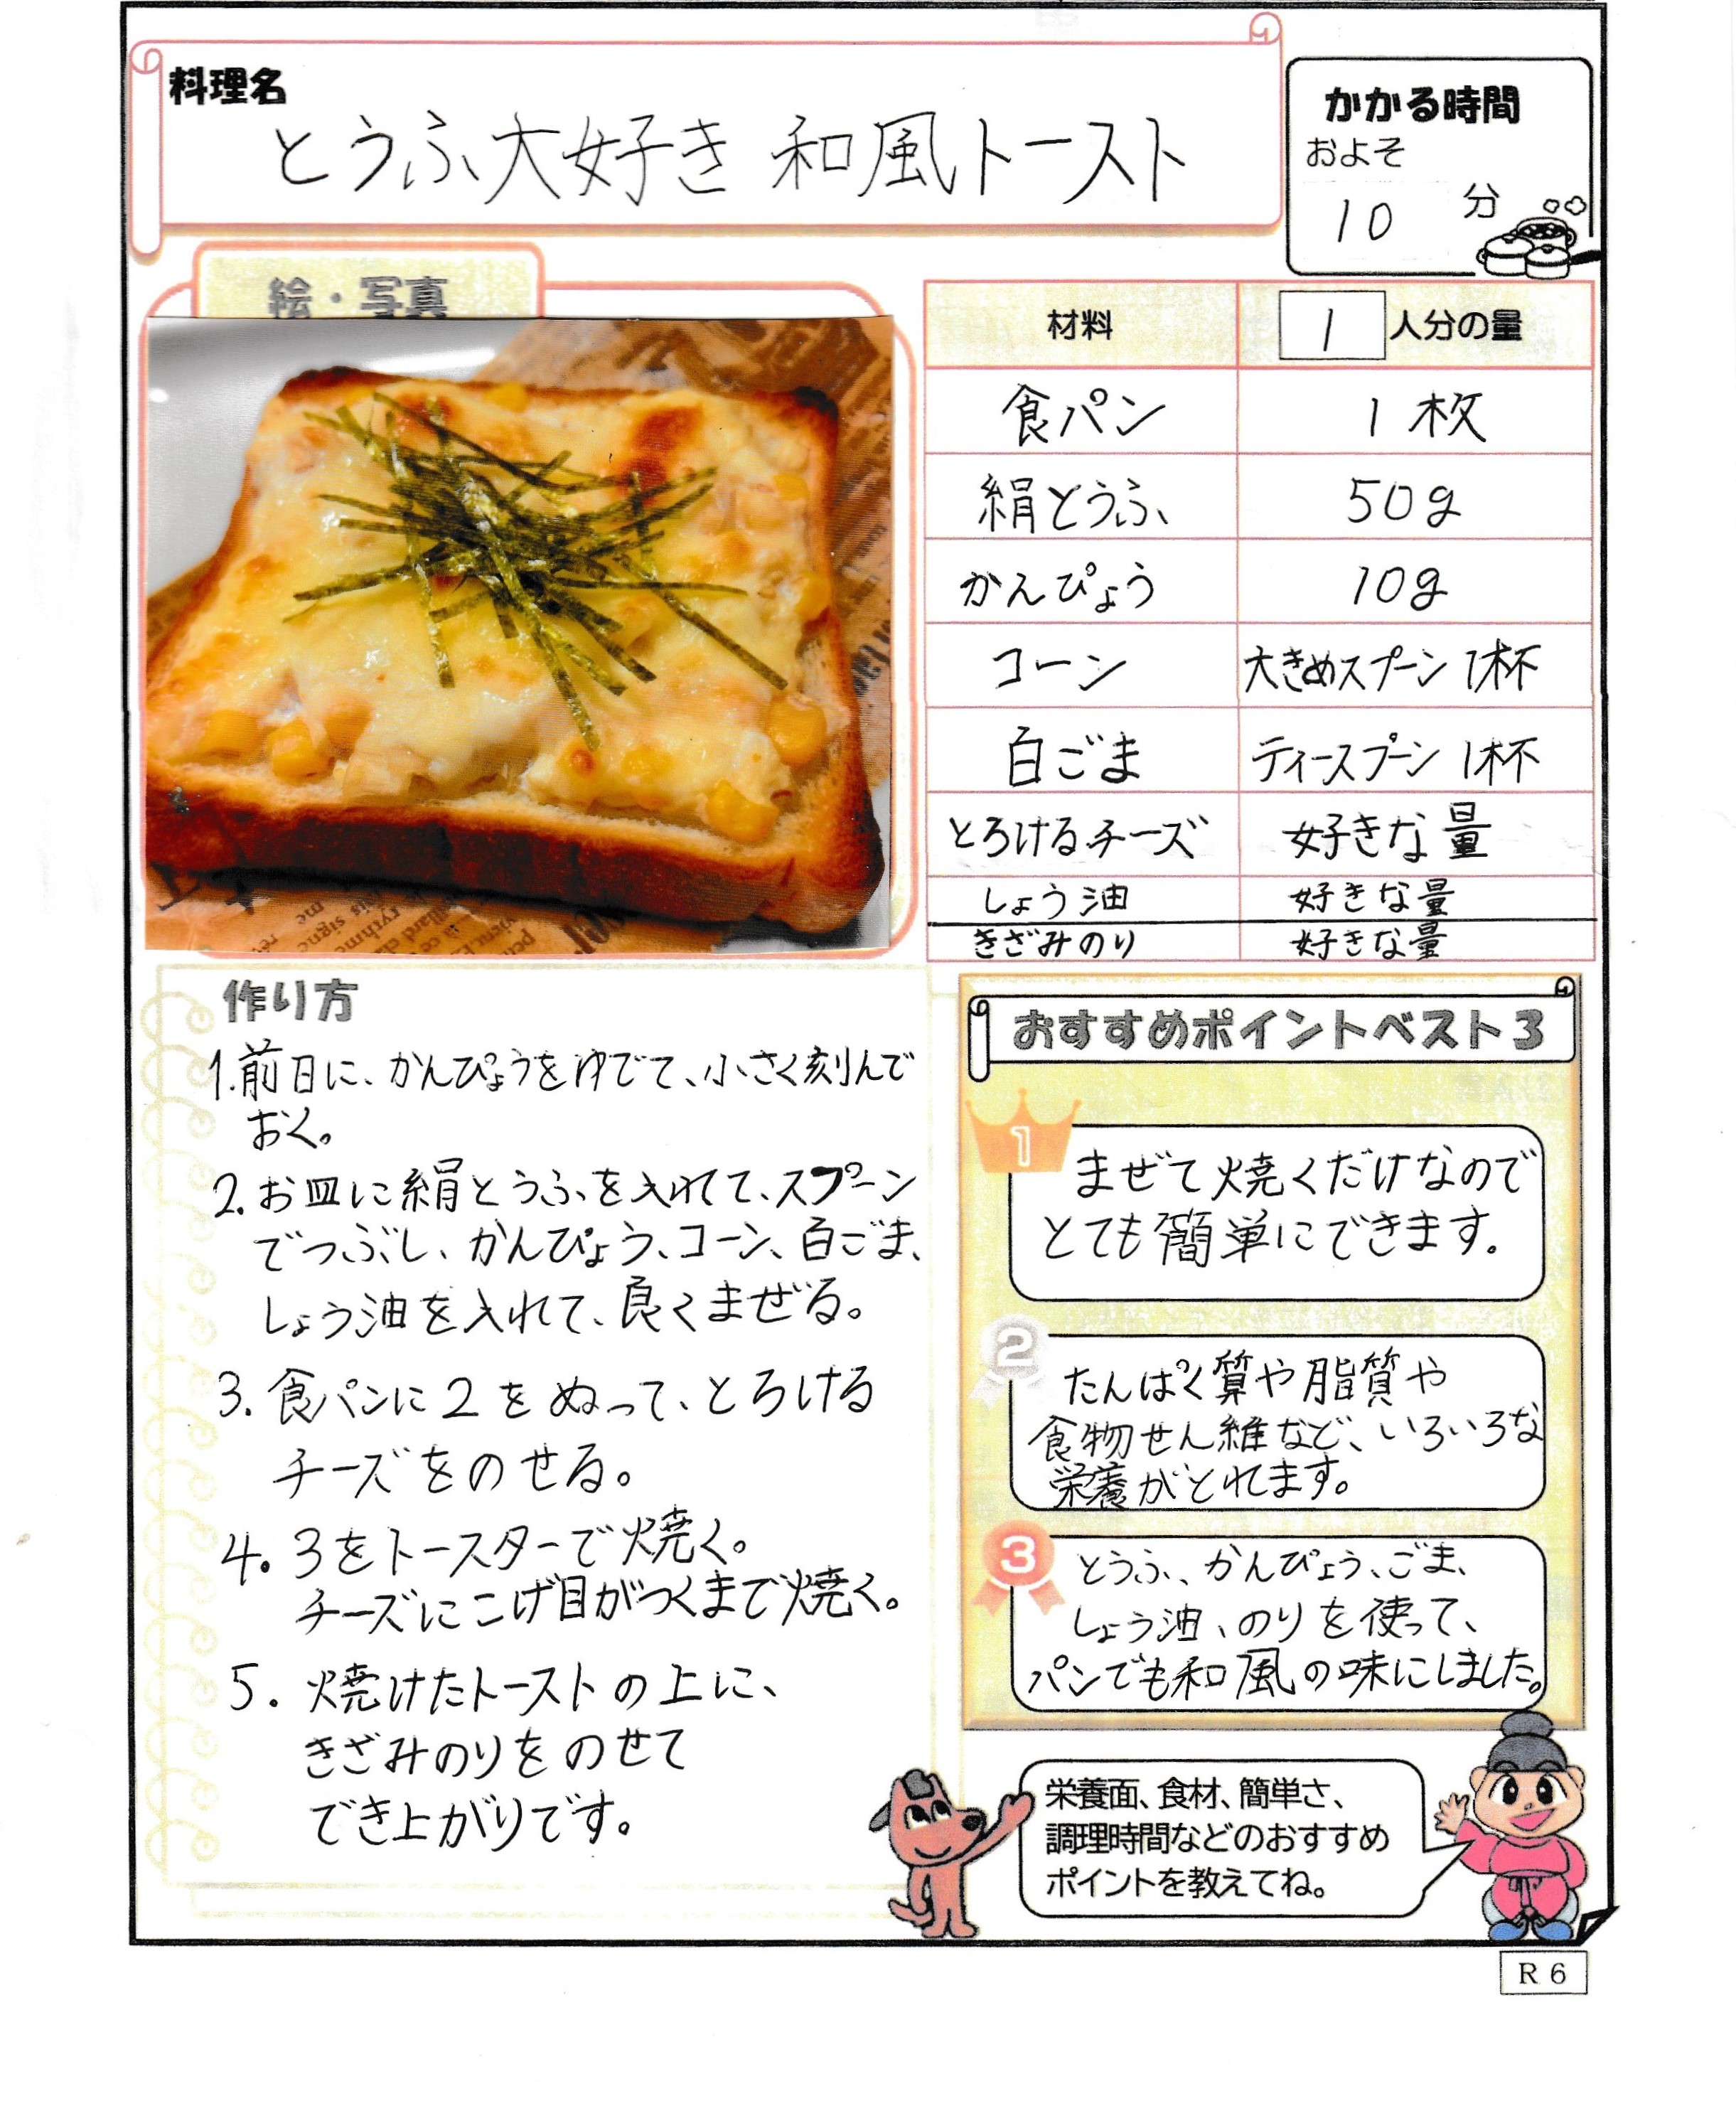 料理名
とうふ大好き 和風トースト
かかる時間
およそ
10 分
絵・写真
材料 1 人分の量
食パン 1枚
絹とうふ 50g
かんぴょう 10g
コーン 大きめスプーン 1杯
白ごま ティースプーン 1杯
とろけるチーズ 好きな量
しょう油 好きな量
きざみのり 好きな量
作り方
1.前日に、かんぴょうをゆでて、小さく刻んで
おく。
2.お皿に絹とうふを入れて、スプーン
でつぶし、かんぴょう、コーン、白ごま、
しょう油を入れて、良くまぜる。
3.食パンに2をぬって、とろける
チーズをのせる。
4.3をトースターで焼く。
チーズにこげ目がつくまで焼く。
5.焼けたトーストの上に、
きざみのりをのせて
でき上がりです。
おすすめポイントベスト3
1
まぜて焼くだけなので
とても簡単にできます。
2
たんぱく質や脂質や
食物せん維など、いろいろな
栄養がとれます。
3
とうふ、かんぴょう、ごま、
しょう油、のりを使って、
パンでも和風の味にしました。
栄養面、食材、簡単さ、
調理時間などのおすすめ
ポイントを教えてね。
R6